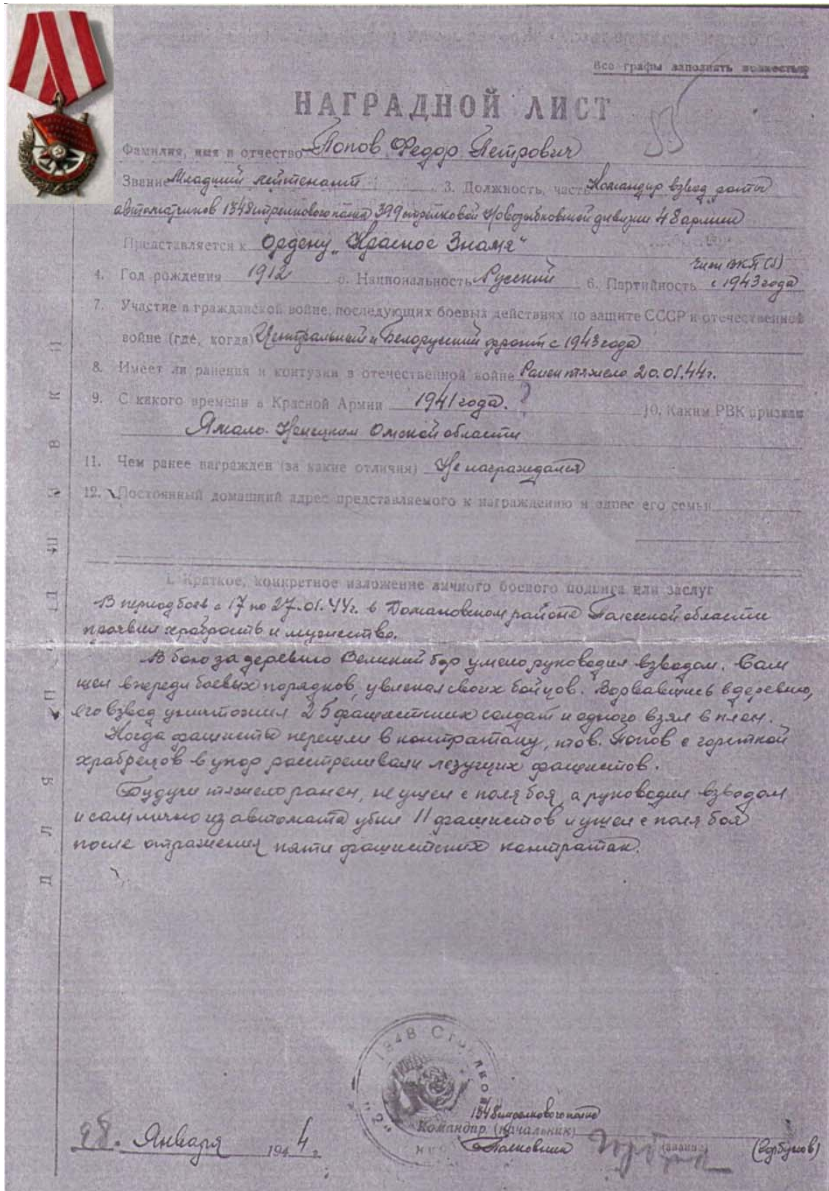 Все графы заполнять полностью
НАГРАДНОЙ ЛИСТ
Фамилия, имя и отчество Попов Федор Петрович
Звание Младший лейтенант 3. Должность, часть Командир взвод роты
автоматчиков 1348 стрелкового полка 399 стрелковой Новозыбковской дивизии 48 армии
Представляется к Ордену "Красное Знамя"
4. Год рождения 1912 5. Национальность Русский 6. Партийность член ВКП(б) с 1943 года
7. Участие в гражданской войне, последующих боевых действиях по защите СССР и отечественной
войне (где, когда) Центральный и Белорусский фронт с 1943 года
8. Имеет ли ранения и контузии в отечественной войне Ранен тяжело 20.01.44г.
9. С какого времени в Красной Армии 1941 года. ? 10. Каким РВК призван
Ямало-Ненецким Омской области
11. Чем ранее награжден (за какие отличия) Не награждался
12. Постоянный домашний адрес представляемого к награждению и адрес его семьи
I. Краткое, конкретное изложение личного боевого подвига или заслуг
В период боев с 17 по 27.01.44г. в Домановском районе Полесской области
проявил храбрость и мужество.
В бою за деревню Великий бор умело руководил взводом. Сам
шел впереди боевых порядков, увлекал своих бойцов. Ворвавшись в деревню,
его взвод уничтожил 25 фашистских солдат и одного взял в плен.
Когда фашисты перешли в контратаку, тов. Попов с горсткой
храбрецов в упор расстреливали лезущих фашистов.
Будучи тяжело ранен, не ушел с поля боя, а руководил взводом
и сам лично из автомата убил 11 фашистов и ушел с поля боя
после отражения пяти фашистских контратак.
1348 стрелкового полка
Командир (начальник)
Полковник (Горбунов)
28. Января 1944г.